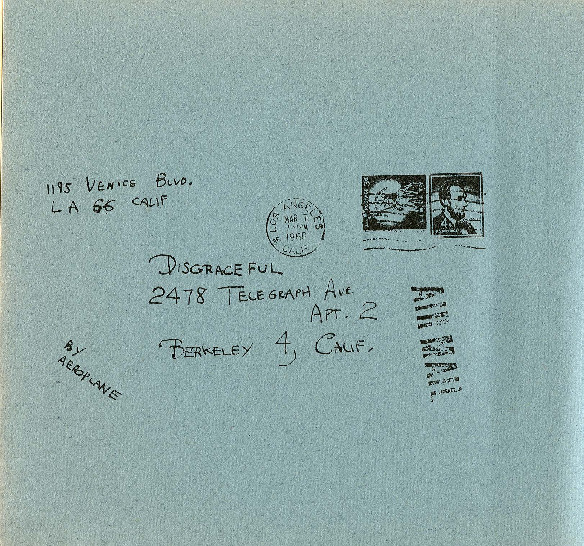 1195 VENICE BLVD.
LA 66 CALIF
LOS ANGELES
MAR
CALIF
DISGRACEFUL
2478 TELEGRAPH AVE.
APT. 2
BERKELEY 4, CALIF.
BY
AEROPLANE
AIR MAIL